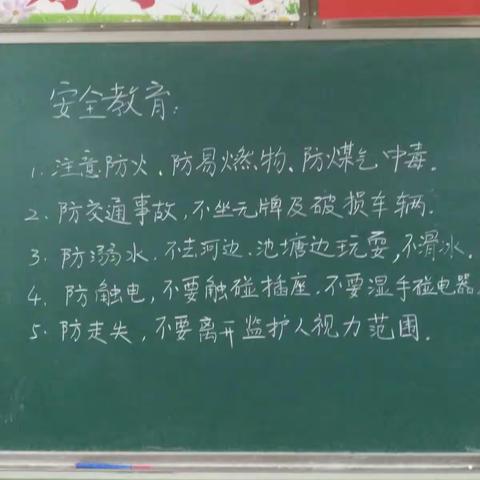 安全教育:
1. 注意防火、防易燃物、防煤气中毒.
2. 防交通事故,不坐无牌及破损车辆.
3. 防溺水,不去河边、池塘边玩耍,不滑冰.
4. 防触电,不要触碰插座.不要湿手碰电器.
5. 防走失,不要离开监护人视力范围.